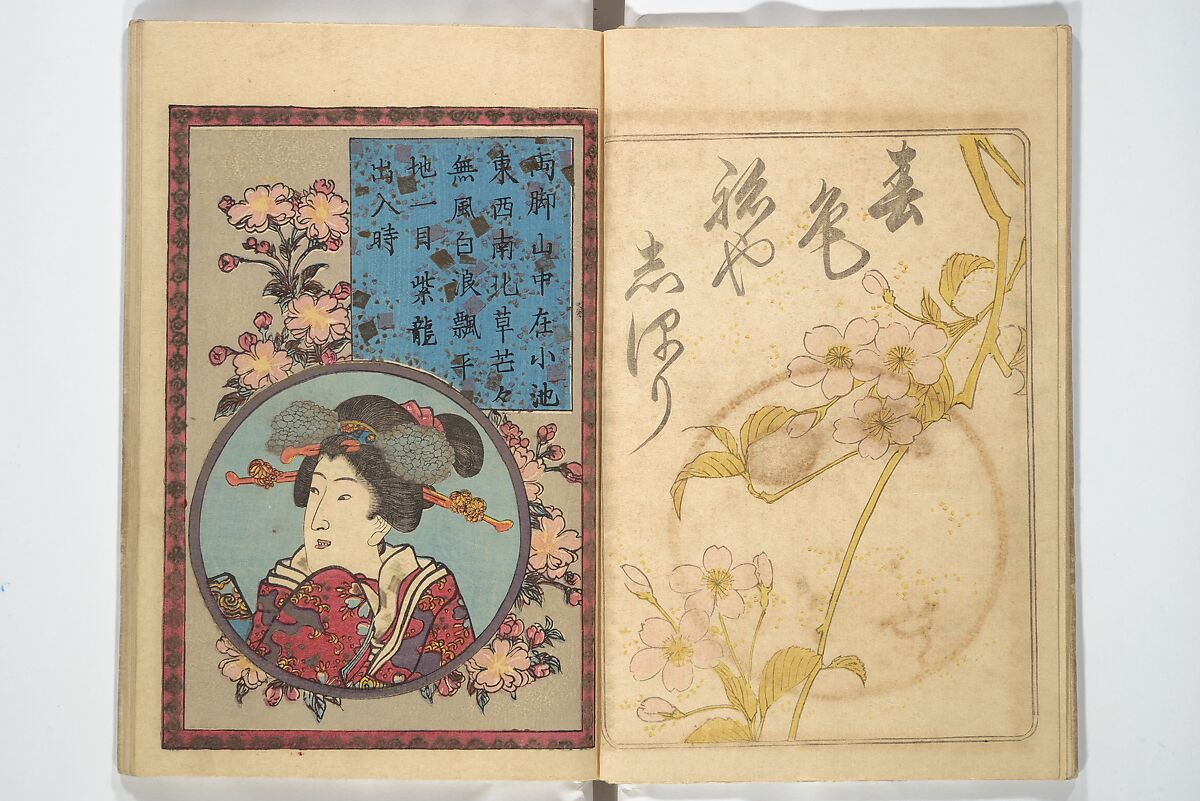 春
色
初や
志保り
両脚山中在小池
東西南北草芒々
無風白浪飄平
地一目紫龍
出入時